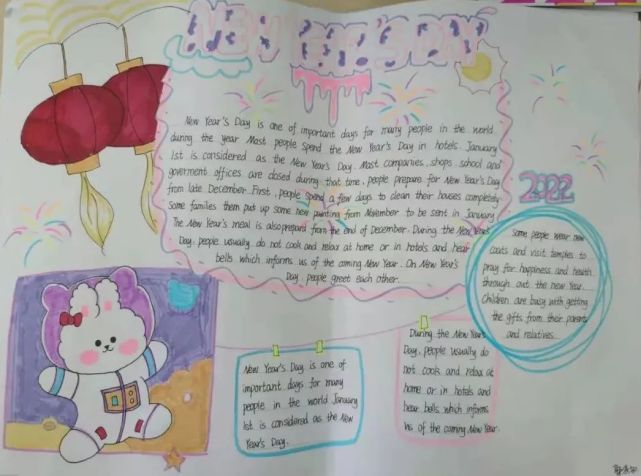 NEW YEAR'S DAY
New Year's Day is one of important days for many people in the world
during the year Most people spend the New Year's Day in hotels. January
1st is considered as the New Year's Day. Most companies, shops, school and
goverment offices are closed during that time. people prepare for New Year's Day
from late December. First, people spend a few days to clean their houses completely
Some families them put up some new painting from November to be sent in January
The New Year's meal is also prepared from the end of December. During the New Year's
Day, people usually do not cook and relax at home or in hotels and hear
bells which informs us of the coming New Year. On New Year's
Day, people greet each other.
2022
Some people wear new
coats and visit temples to
pray for happiness and health
through out the new Year.
Children are busy with getting
the gifts from their parents
and relatives.
New Year's Day is one of
important days for many
people in the world January
1st is considered as the New
Year's Day.
During the New Year's
Day, people usually do
not cook and relax at
home or in hotels and
hear bells which informs
us of the coming New Year.